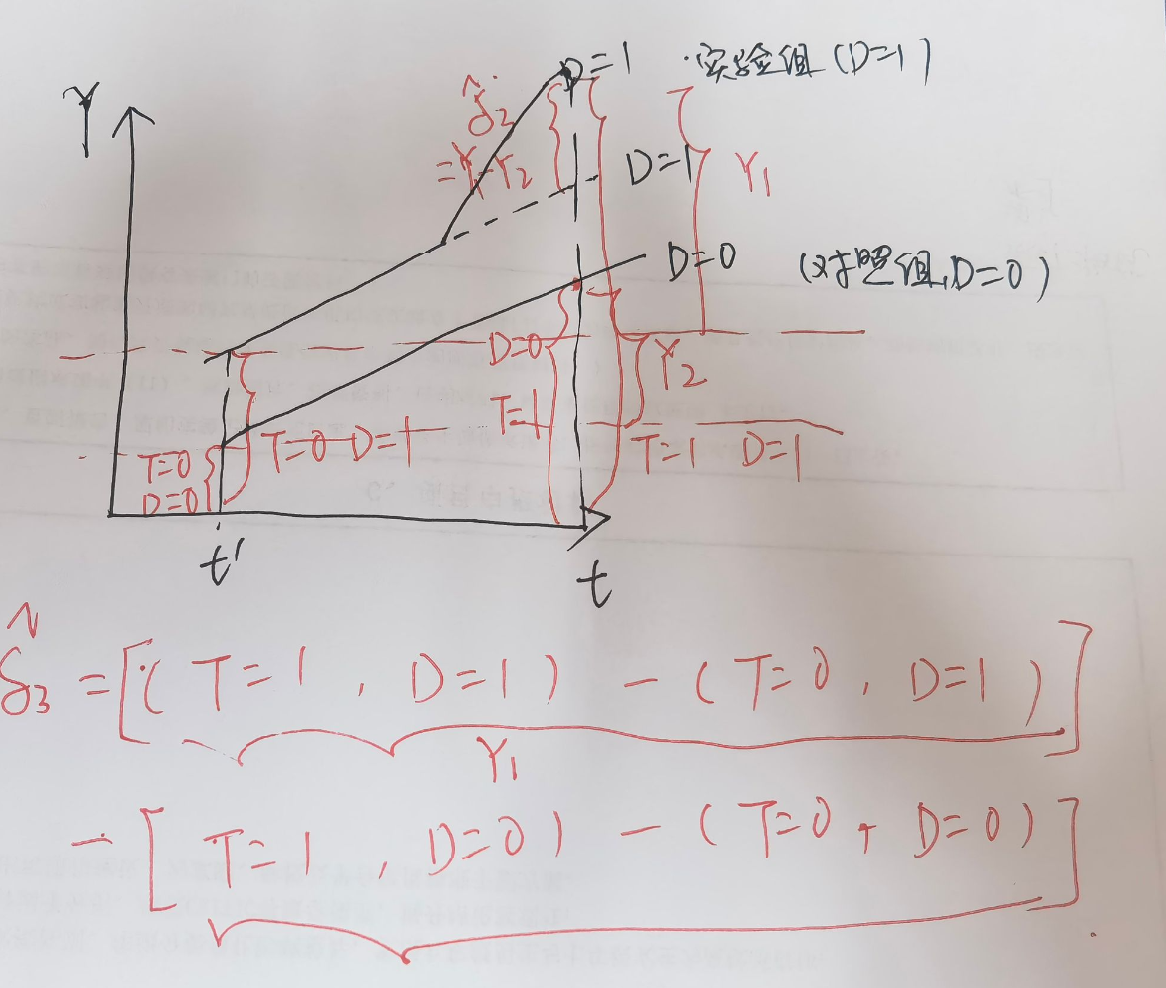 Y
D=1 ·实验组(D=1)
δ̂₂
=Y₁-Y₂
D=1
Y₁
D=0 (对照组,D=0)
D=0
T=1
Y₂
T=0 D=1
T=1 D=1
T=0
D=0
t' t
δ̂₃ =[( T=1 , D=1 ) - ( T=0 , D=1 )]
Y₁
- [ T=1 , D=0 ) - ( T=0 , D=0 )]